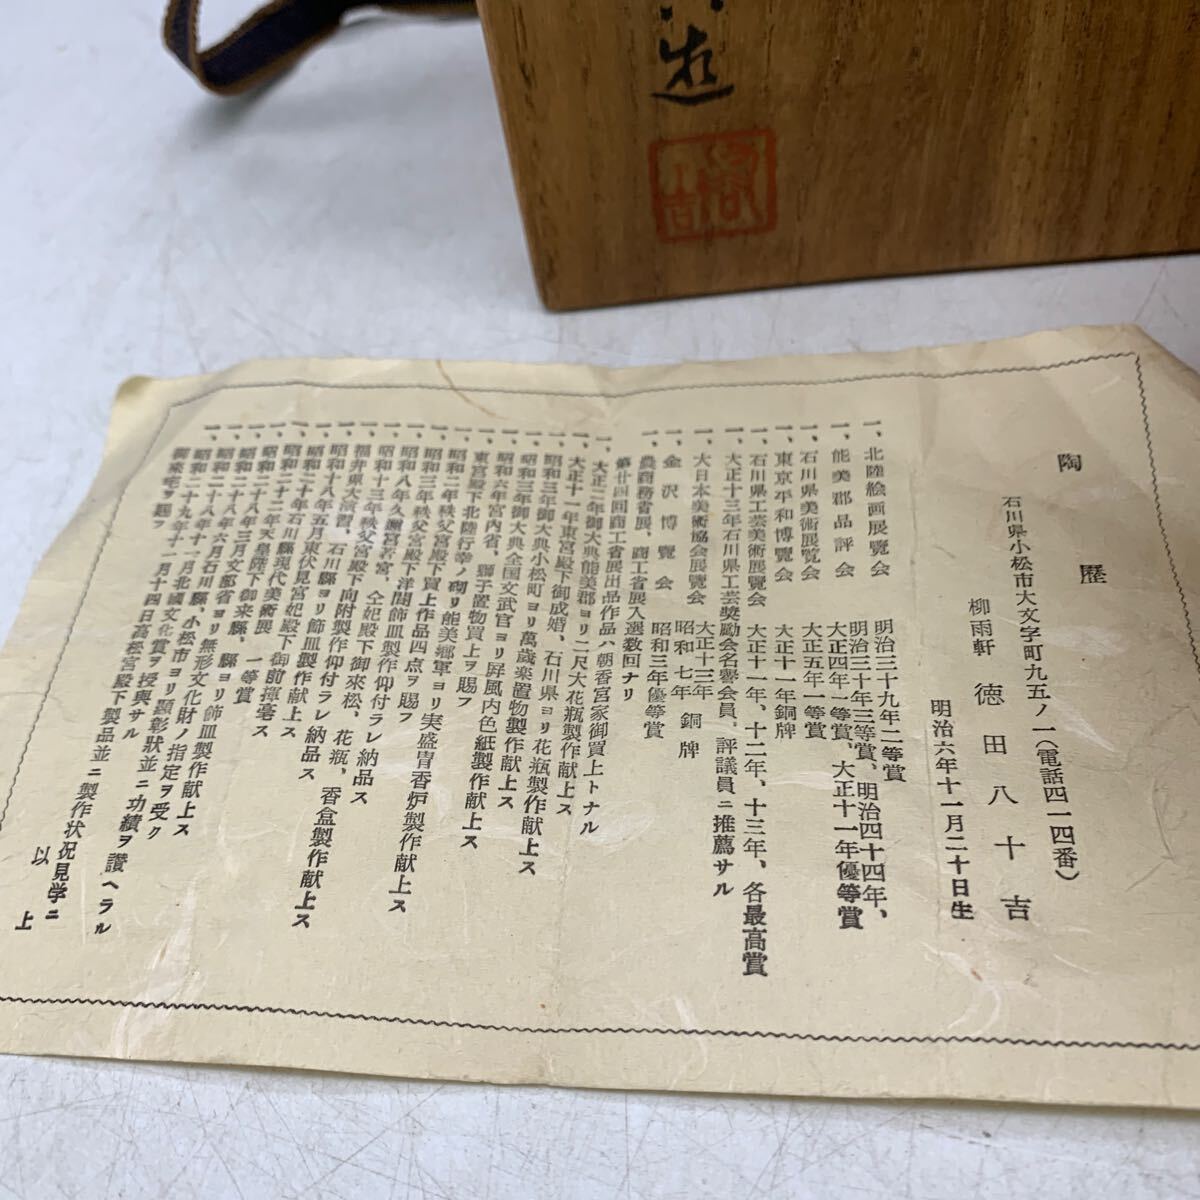 造
陶歴
石川県小松市大文字町九五ノ一(電話四一四番)
柳雨軒 徳田八十吉
明治六年十一月二十日生
一、北陸絵画展覧会 明治三十九年二等賞
明治三十年三等賞、明治四十四年、
一、能美郡品評会 大正四年一等賞、大正十一年優等賞
一、石川県美術展覧会 大正五年一等賞
一、東京平和博覽会 大正十一年銅牌
一、石川県工芸美術展覽会 大正十一年、十二年、十三年、各最高賞
一、大正十三年石川県工芸奨励会名誉会員、評議員ニ推薦サル
一、大日本美術協会展覽会 大正十三年 銅牌
一、金沢博覽会 昭和七年
昭和三年優等賞
一、農商務省展、商工省展入選数回ナリ
第廿四回商工省展出品作品ハ朝香宮家御買上トナル
一、大正二年御大典能美郡ヨリ二尺大花瓶製作献上ス
一、大正十一年東宮殿下御成婚、石川県ヨリ花瓶製作献上ス
一、昭和三年御大典小松町ヨリ萬歳楽置物製作献上ス
一、昭和三年御大典全国文武官ヨリ屏風内色紙製作献上ス
一、昭和六年宮内省、獅子置物買上ヲ賜フ
一、東宮殿下北陸行幸ノ砌リ能美郷軍ヨリ実盛冑香炉製作献上ス
一、昭和二年秩父宮殿下買上作品四点ヲ賜フ
一、昭和三年秩父宮殿下洋間飾皿製作仰付ラレ納品ス
一、昭和八年久邇宮若宮、仝妃殿下御來松、花瓶、香盒製作献上ス
一、昭和十三年秩父宮殿下向附製作仰付ラレ納品ス
一、福井県大演習、石川縣ヨリ飾皿製作献上ス
一、昭和十八年五月東伏見宮妃殿下御前揮毫ス
一、昭和二十年石川縣現代美術展 一等賞
一、昭和二十二年天皇陛下御来縣、縣ヨリ飾皿製作献上ス
一、昭和二十八年三月文部省ヨリ無形文化財ノ指定ヲ受ク
一、昭和二十八年六月石川縣、小松市ヨリ顕彰狀並ニ功績ヲ讃ヘラル
一、昭和二十八年十一月北國文化賞ヲ授與サル
一、昭和二十九年十一月十四日高松宮殿下製品並ニ製作状況見学ニ
御來宅ヲ賜フ
以上